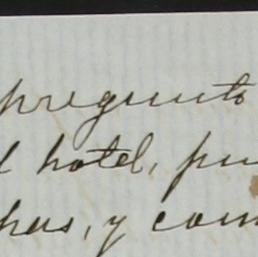 pregunto
l hotel, pu
has, y com